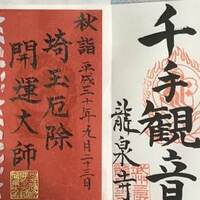 千手観音
龍泉寺
秋詣
平成三十年九月二十三日
埼玉厄除
開運大師